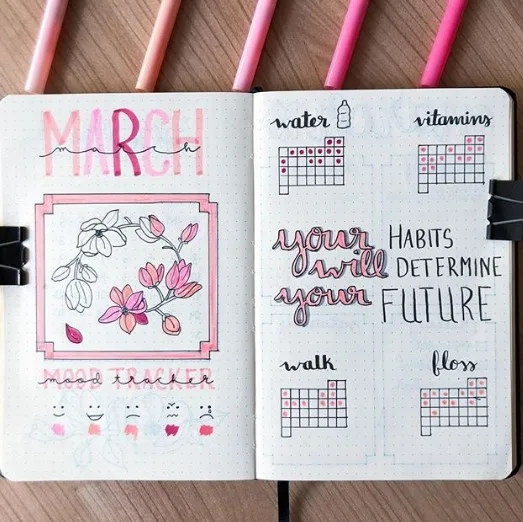 MARCH
march
MOOD TRACKER
mood tracker
water
vitamins
your HABITS
will DETERMINE
your FUTURE
walk
floss